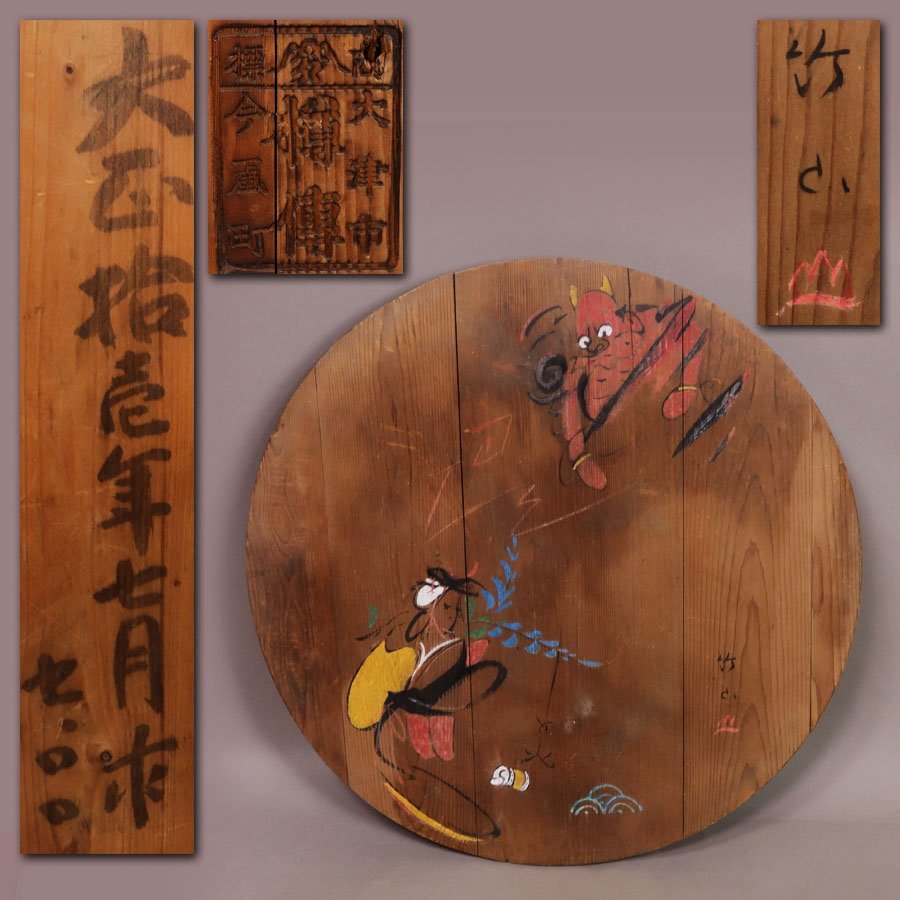 大正拾壱年七月求
七、〇〇
大津市
樽傳
今風町
竹山
竹山